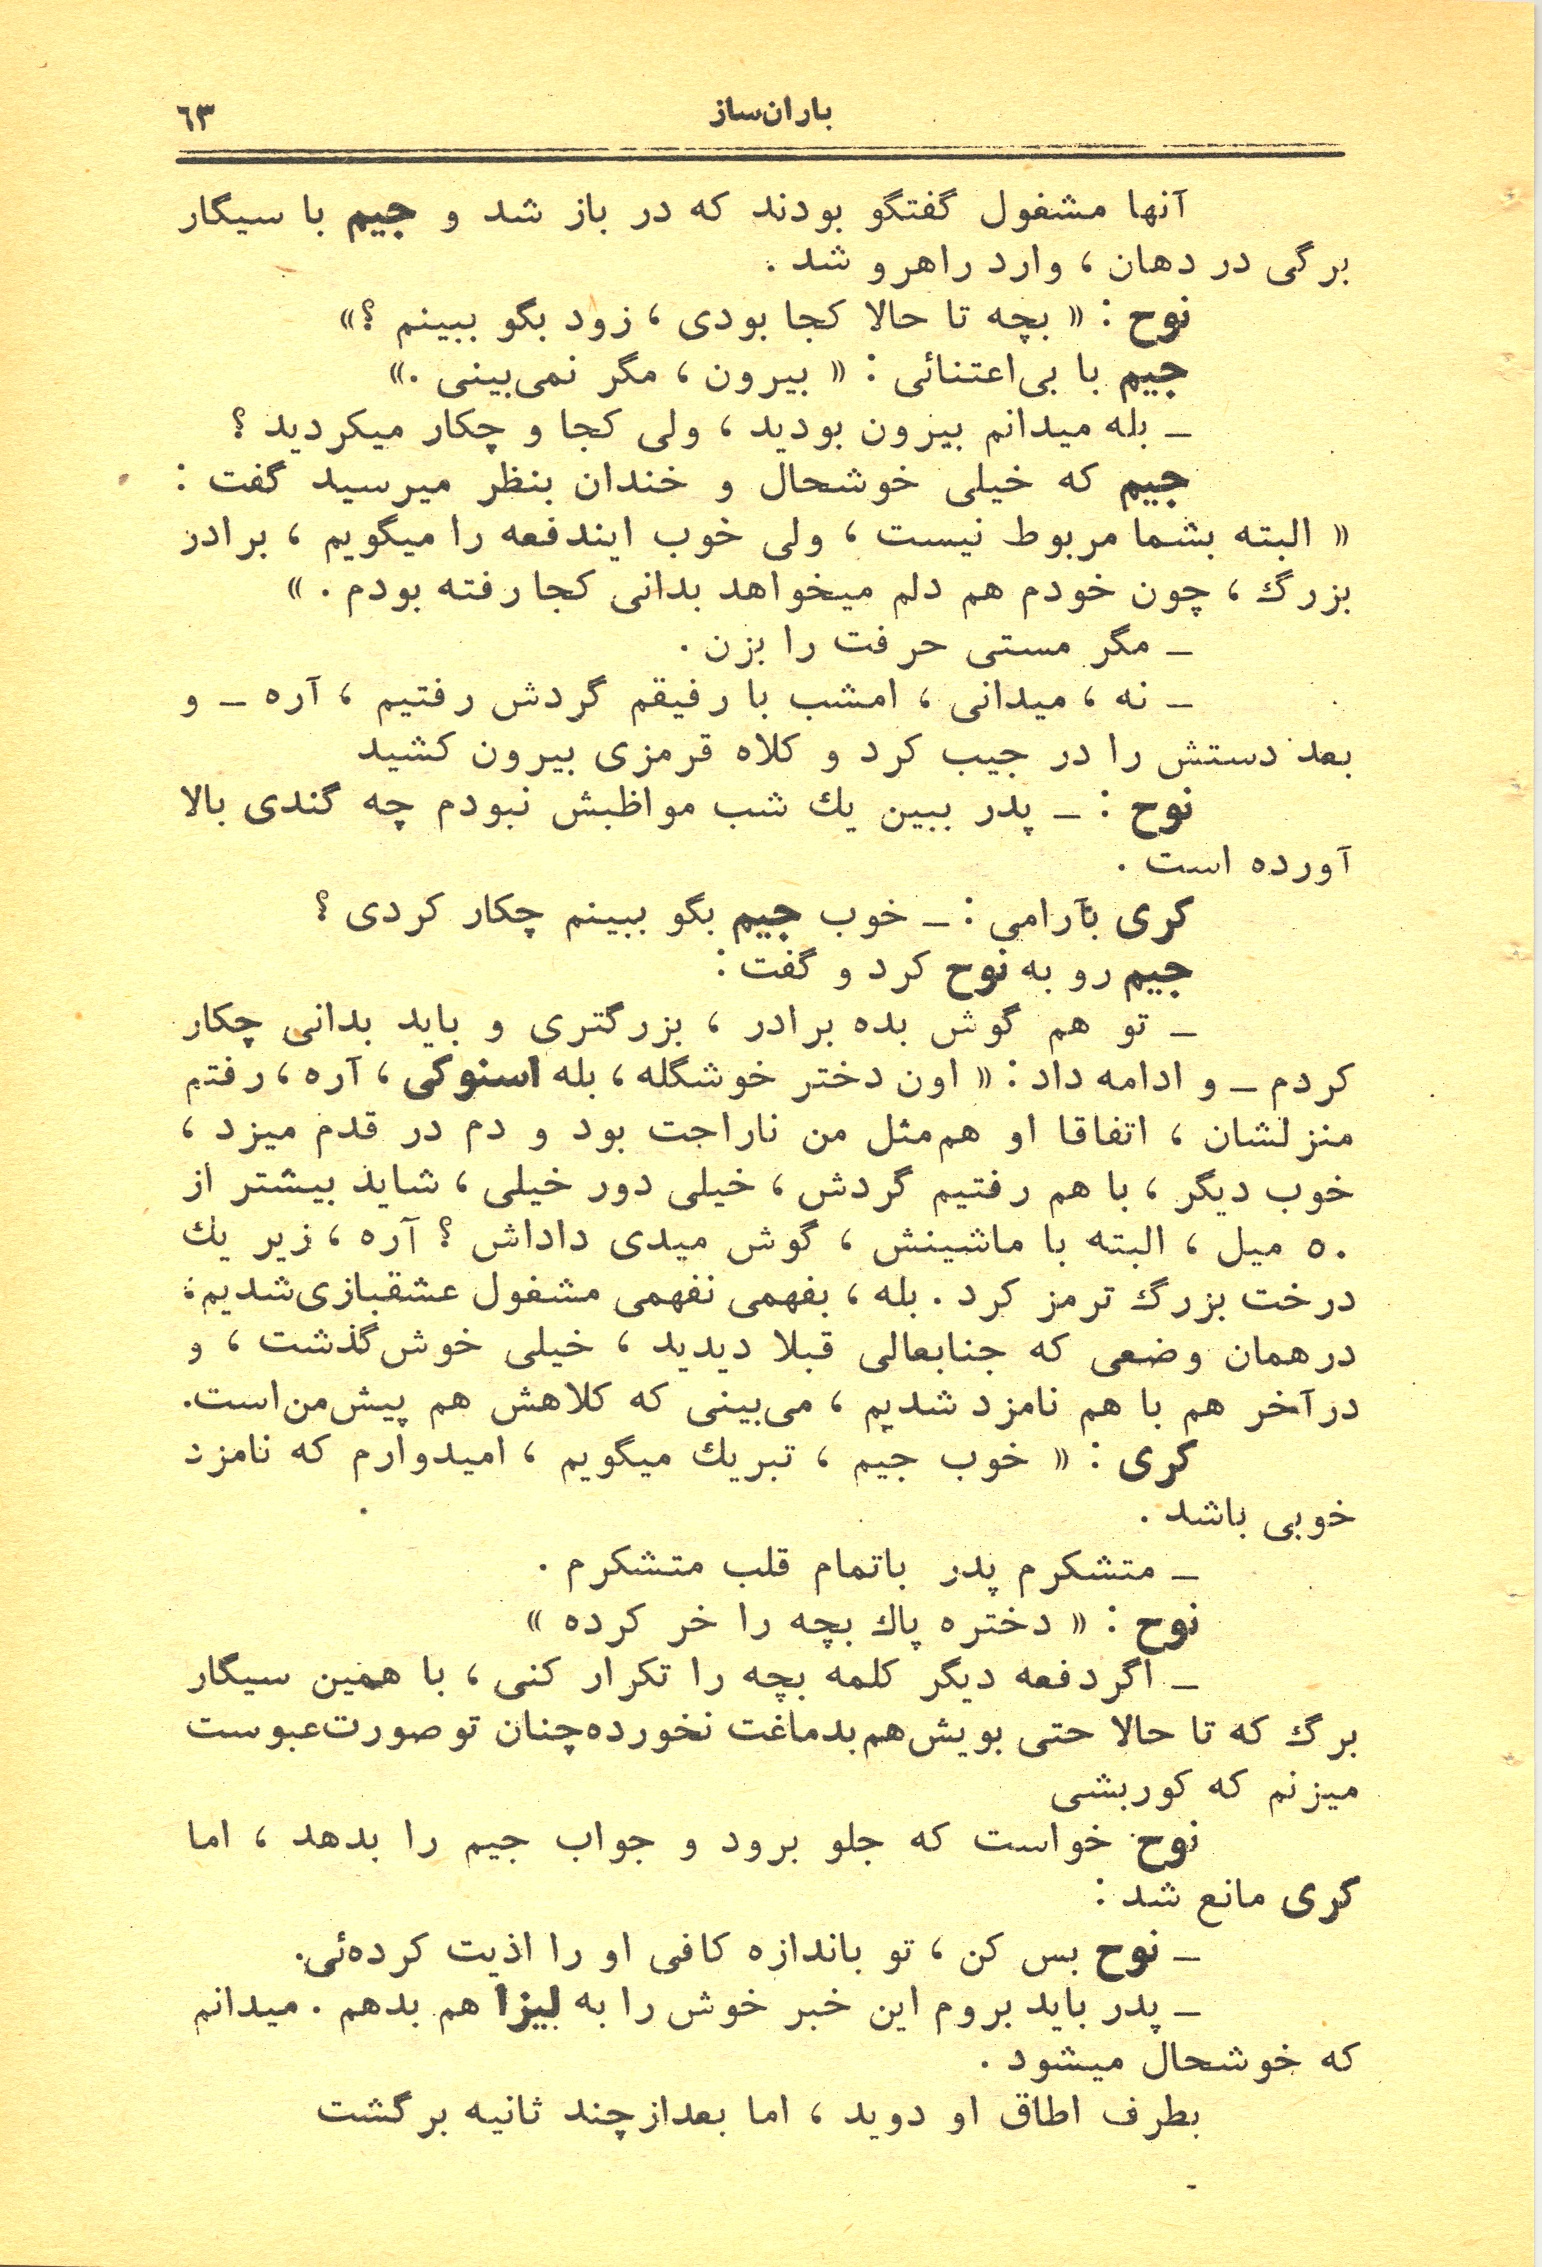 باران‌ساز
٦٣
آنها مشغول گفتگو بودند که در باز شد و جیم با سیگار
برگی در دهان ، وارد راهرو شد .
نوح : « بچه تا حالا کجا بودی ، زود بگو ببینم ؟»
جیم با بی‌اعتنائی : « بیرون ، مگر نمی‌بینی .»
ـ بله میدانم بیرون بودید ، ولی کجا و چکار میکردید ؟
جیم که خیلی خوشحال و خندان بنظر میرسید گفت :
« البته بشما مربوط نیست ، ولی خوب ایندفعه را میگویم ، برادر
بزرگ ، چون خودم هم دلم میخواهد بدانی کجا رفته بودم . »
ـ مگر مستی حرفت را بزن .
ـ نه ، میدانی ، امشب با رفیقم گردش رفتیم ، آره ـ و
بعد دستش را در جیب کرد و کلاه قرمزی بیرون کشید
نوح : ـ پدر ببین یك شب مواظبش نبودم چه گندی بالا
آورده است .
کری بآرامی : ـ خوب جیم بگو ببینم چکار کردی ؟
جیم رو به نوح کرد و گفت :
ـ تو هم گوش بده برادر ، بزرگتری و باید بدانی چکار
کردم ـ و ادامه داد : « اون دختر خوشگله ، بله اسنوکی ، آره ، رفتم
منزلشان ، اتفاقا او هم‌مثل من ناراحت بود و دم در قدم میزد ،
خوب دیگر ، با هم رفتیم گردش ، خیلی دور خیلی ، شاید بیشتر از
٥٠ میل ، البته با ماشینش ، گوش میدی داداش ؟ آره ، زیر یك
درخت بزرگ ترمز کرد . بله ، بفهمی نفهمی مشغول عشقبازی‌شدیم ؛
درهمان وضعی که جنابعالی قبلا دیدید ، خیلی خوش‌گذشت ، و
درآخر هم با هم نامزد شدیم ، می‌بینی که کلاهش هم پیش‌من‌است.
کری : « خوب جیم ، تبریك میگویم ، امیدوارم که نامزد
خوبی باشد .
ـ متشکرم پدر باتمام قلب متشکرم .
نوح : « دختره پاك بچه را خر کرده »
ـ اگردفعه دیگر کلمه بچه را تکرار کنی ، با همین سیگار
برگ که تا حالا حتی بویش‌هم‌بدماغت نخورده‌چنان تو صورت‌عبوست
میزنم که کوربشی
نوح خواست که جلو برود و جواب جیم را بدهد ، اما
کری مانع شد :
ـ نوح بس کن ، تو باندازه کافی او را اذیت کرده‌ئی.
ـ پدر باید بروم این خبر خوش را به لیزا هم بدهم . میدانم
که خوشحال میشود .
بطرف اطاق او دوید ، اما بعدازچند ثانیه برگشت